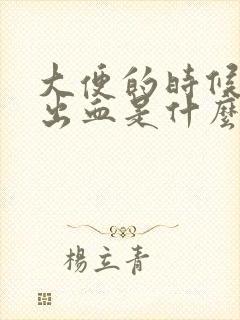 大便的時候
出血是什麼
楊立青